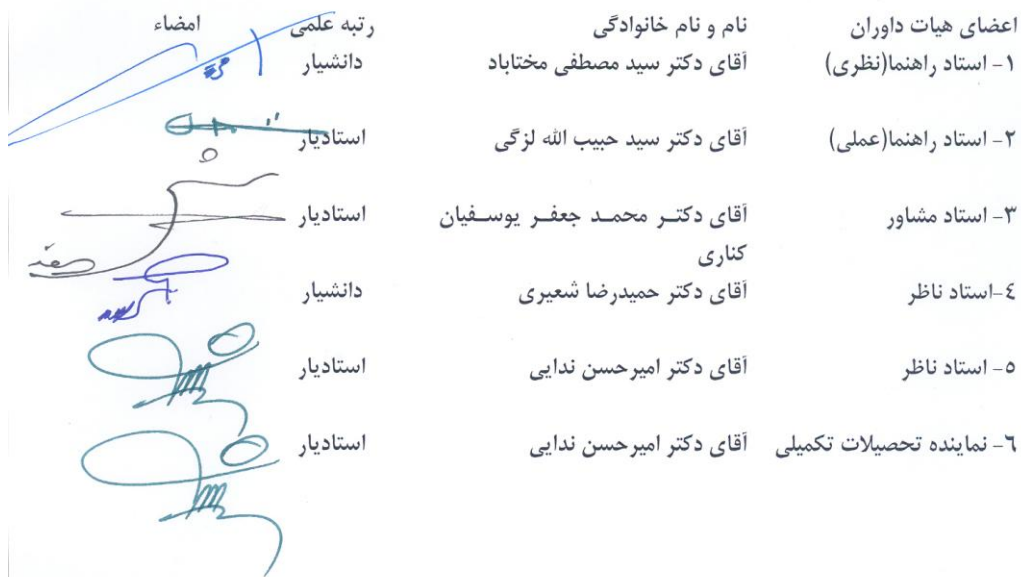 اعضای هیات داوران نام و نام خانوادگی رتبه علمی امضاء
۱- استاد راهنما(نظری) آقای دکتر سید مصطفی مختاباد دانشیار
۲- استاد راهنما(عملی) آقای دکتر سید حبیب الله لزگی استادیار
۳- استاد مشاور آقای دکتـر محمـد جعفـر یوسـفیان استادیار
کناری
٤-استاد ناظر آقای دکتر حمیدرضا شعیری دانشیار
٥- استاد ناظر آقای دکتر امیرحسن ندایی استادیار
٦- نماینده تحصیلات تکمیلی آقای دکتر امیرحسن ندایی استادیار